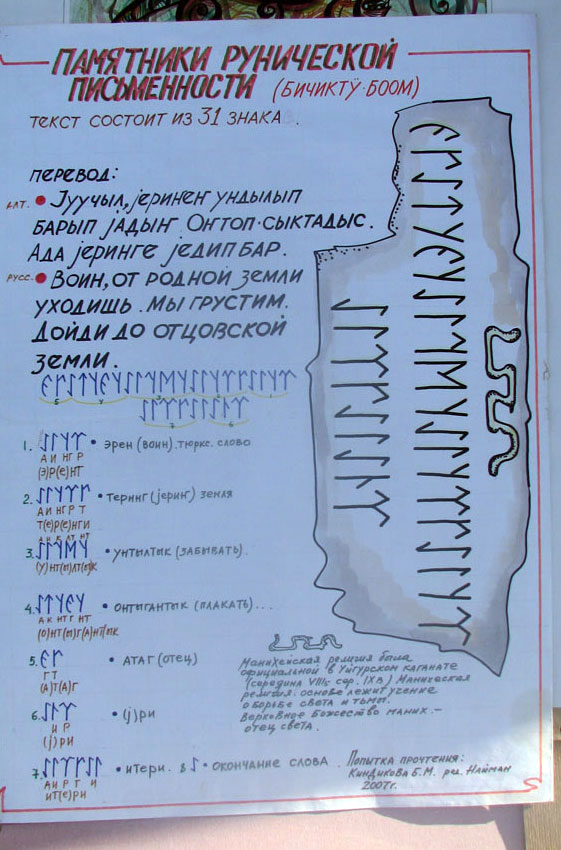 ПАМЯТНИКИ РУНИЧЕСКОЙ
ПИСЬМЕННОСТИ (БИЧИКТӰ-БООМ)
ТЕКСТ СОСТОИТ ИЗ 31 ЗНАКА.
ПЕРЕВОД:
АЛТ. • ЈУУЧЫЛ, ЈЕРИҤЕҤ УНДЫЛЫП
БАРЫП ЈАДЫҤ. ОҤТОП-СЫКТАДЫС.
АДА ЈЕРИНГЕ ЈЕДИП БАР.
РУСС. • ВОИН, ОТ РОДНОЙ ЗЕМЛИ
УХОДИШЬ. МЫ ГРУСТИМ.
ДОЙДИ ДО ОТЦОВСКОЙ
ЗЕМЛИ.
5 4 3 2 1
7 6
1. • ЭРЕН (ВОИН). ТЮРКС. СЛОВО
А И НГ Р
(Э)Р(Е)НТ
2. • ТЕРИНГ (ЈЕРИҤ) ЗЕМЛЯ
А И НГ Р Т
Т(Е)Р(Е)НГИ
3. • УНТЫЛТЫК (ЗАБЫВАТЬ).
(У)НТ(Ы)ЛТ(Ы)К
4. • ОНТЫГАНТЫК (ПЛАКАТЬ)...
А К НТ Г НТ
(О)НТ(Ы)Г(А)НТ(Ы)К
5. • АТАГ (ОТЕЦ)
Г Т
(А)Т(А)Г
6. • (Ј)РИ
И Р
(Ј)РИ
7. • ИТЕРИ. • ОКОНЧАНИЕ СЛОВА.
А И Р Т И
ИТ(Е)РИ
МАНИХЕЙСКАЯ РЕЛИГИЯ БЫЛА
ОФИЦИАЛЬНОЙ В УЙГУРСКОМ КАГАНАТЕ
(СЕРЕДИНА VIII - СЕР. IX В.) МАНИЧЕСКАЯ
РЕЛИГИЯ. ОСНОВЕ ЛЕЖИТ УЧЕНИЕ
О БОРЬБЕ СВЕТА И ТЬМЫ.
ВЕРХОВНОЕ БОЖЕСТВО МАНИХ. -
ОТЕЦ СВЕТА.
ПОПЫТКА ПРОЧТЕНИЯ:
КИНДИКОВА Б.М. РЕД. НАЙМАН
2007г.